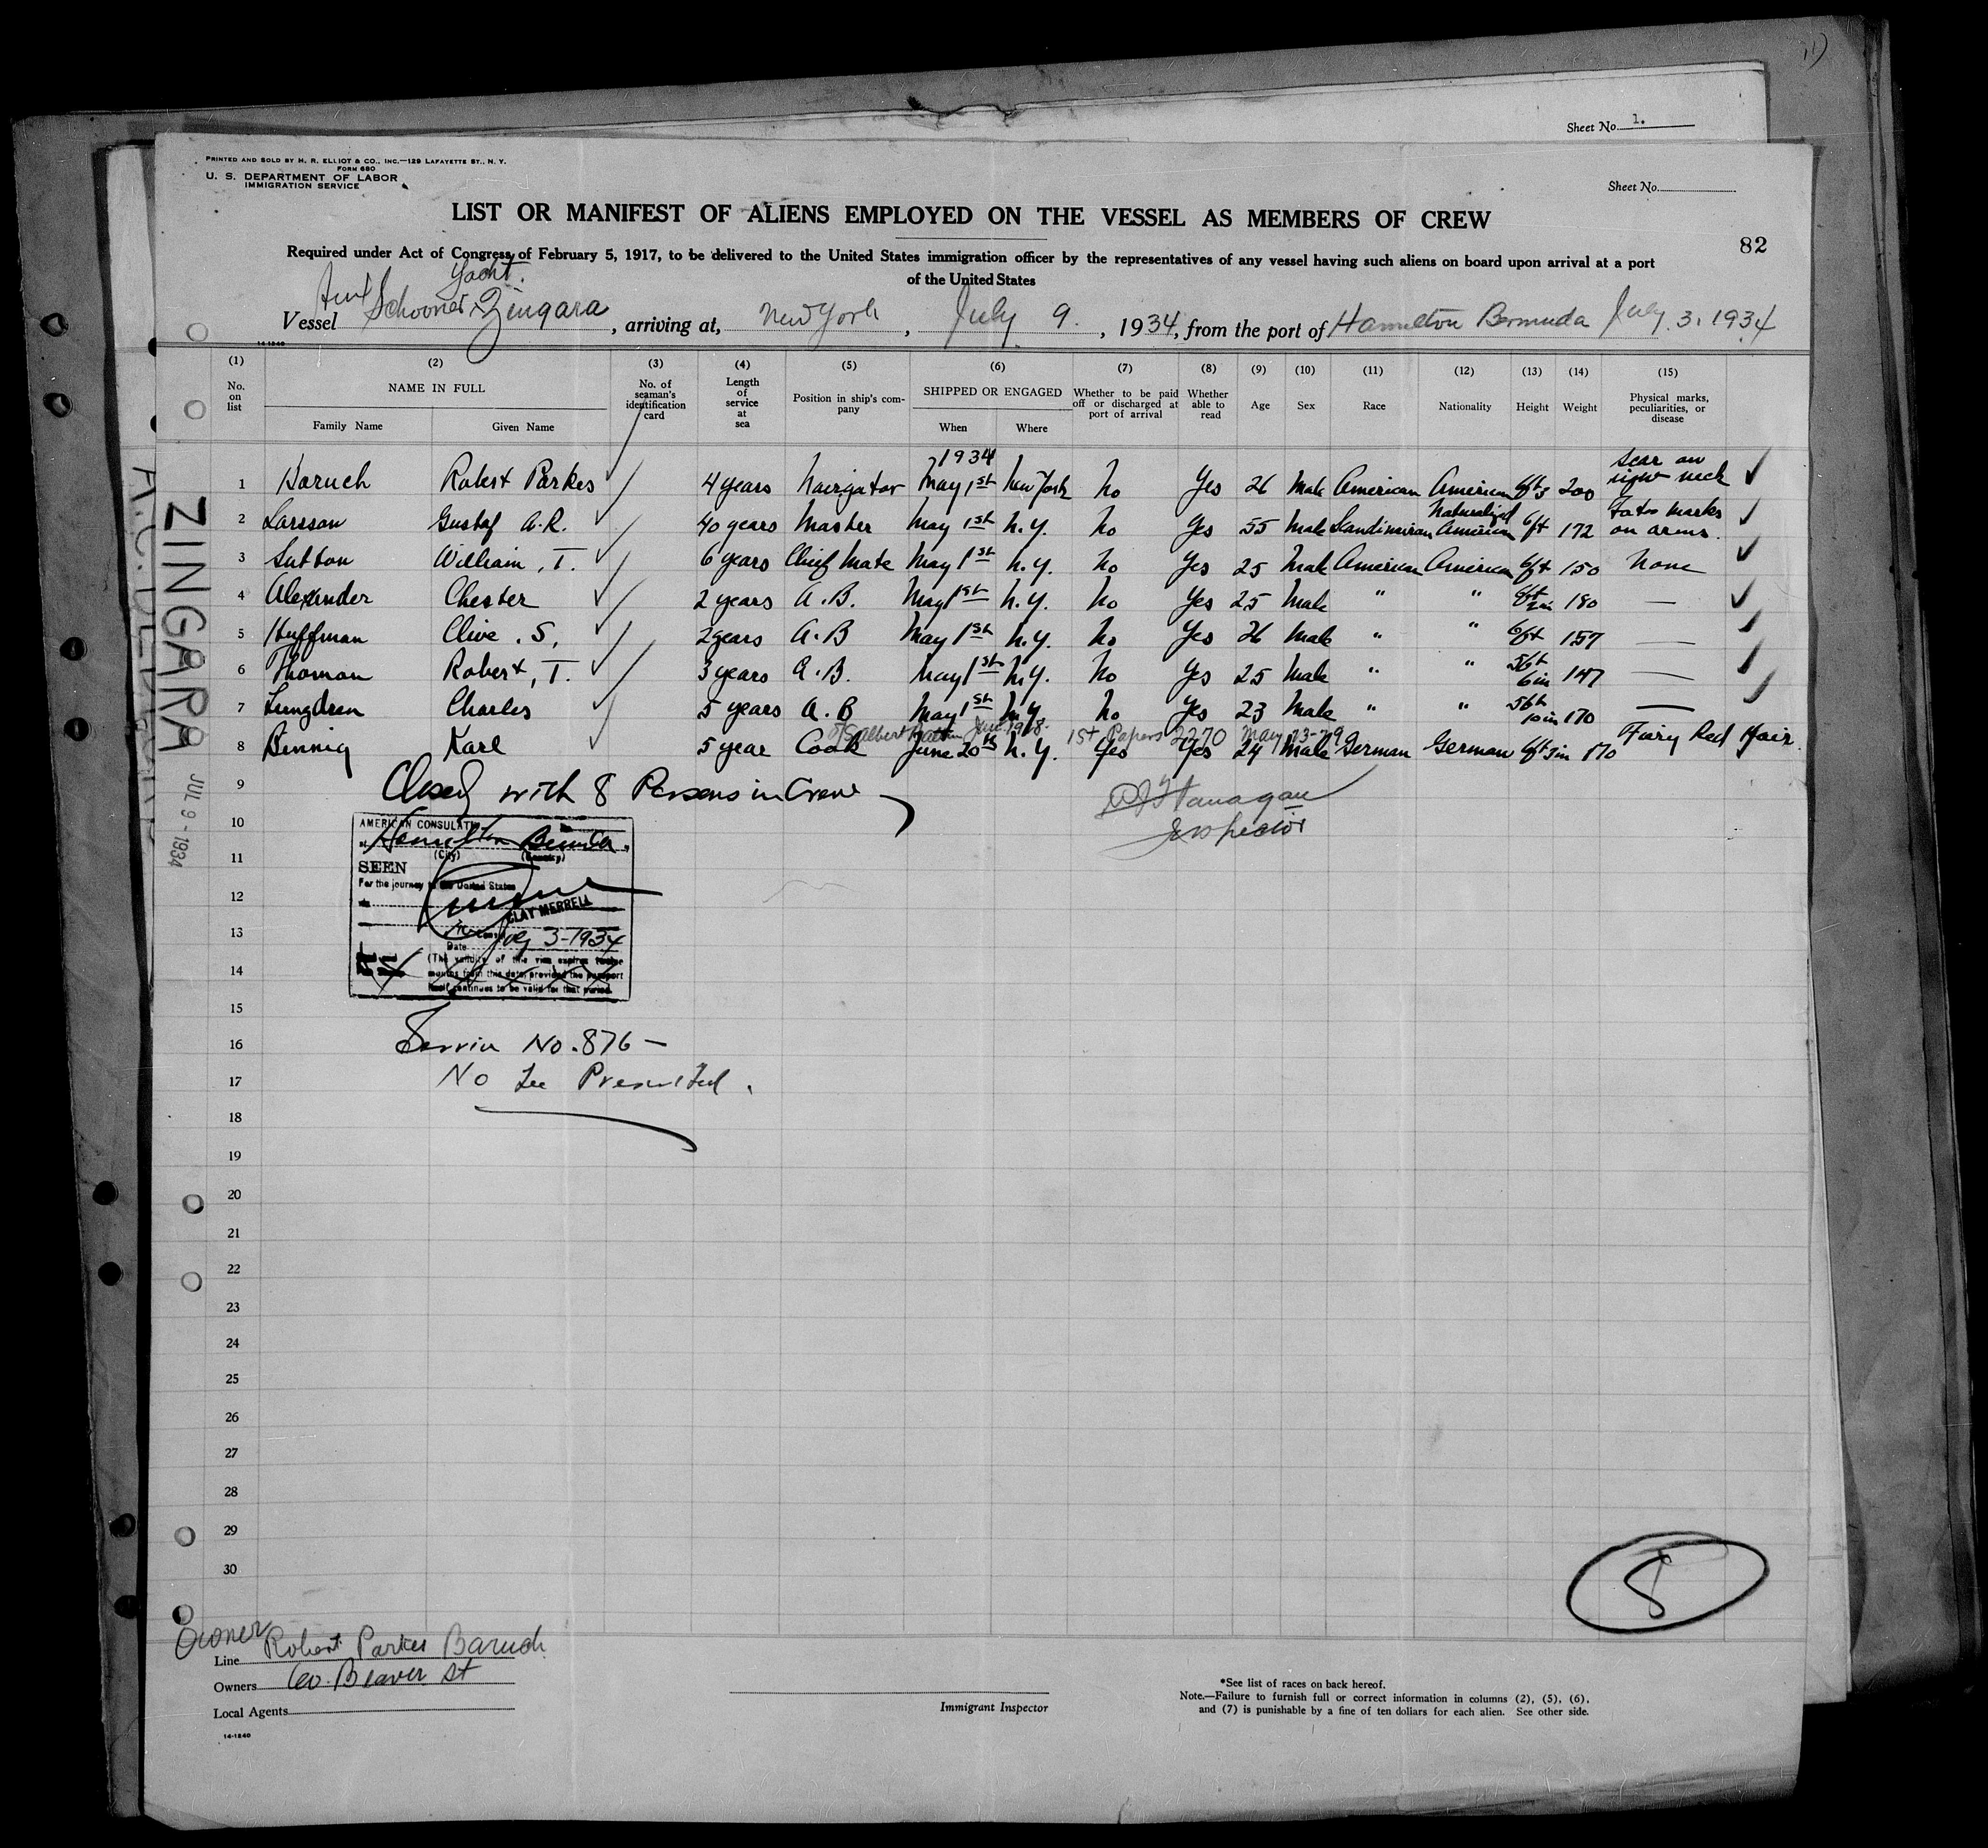 11)
Sheet No. 1.
PRINTED AND SOLD BY H. R. ELLIOT & CO., INC.—129 LAFAYETTE ST., N. Y.
FORM 680
U. S. DEPARTMENT OF LABOR
IMMIGRATION SERVICE
Sheet No.
LIST OR MANIFEST OF ALIENS EMPLOYED ON THE VESSEL AS MEMBERS OF CREW
82
Required under Act of Congress of February 5, 1917, to be delivered to the United States immigration officer by the representatives of any vessel having such aliens on board upon arrival at a port
of the United States
Yacht.
Vessel Schooner Zingara, arriving at, New York, July 9., 1934, from the port of Hamilton Bermuda July. 3. 1934
14-1240
(1) (2) (3) (4) (5) (6) (7) (8) (9) (10) (11) (12) (13) (14) (15)
No. on list
NAME IN FULL
Family Name Given Name
No. of seaman's identification card
Length of service at sea
Position in ship's company
SHIPPED OR ENGAGED
When Where
Whether to be paid off or discharged at port of arrival
Whether able to read
Age Sex Race Nationality Height Weight
Physical marks, peculiarities, or disease
1934
1 Baruch Robert Parkes 4 years Navigator May 1st New York No Yes 26 Male American American 6ft3 200 Scar on right neck
2 Larsson Gustaf A.R. 40 years Master May 1st N.Y. No Yes 55 Male Scandinavian Naturalized American 6ft 172 Tatoo marks on arms.
3 Sutton William, T. 6 years Chief Mate May 1st N.Y. No Yes 25 Male American American 6ft 150 None
4 Alexander Chester 2 years A.B. May 1st N.Y. No Yes 25 Male " " 6ft 2in 180 —
5 Huffman Clive. S, 2 years A.B May 1st N.Y. No Yes 26 Male " " 6ft 157 —
6 Thoman Robert, T. 3 years A.B. May 1st N.Y. No Yes 25 Male " " 5ft 6in 147 —
7 Lungdren Charles 5 years A.B May 1st N.Y. No Yes 23 Male " " 5ft 10in 170 —
1st Papers 2270 May 13-29
8 Bennig Karl 5 year Cook June 20th N.Y. Yes Yes 24 Male German German 6ft 3in 170 Fairy Red Hair.
9 Closed with 8 Persons in Crew
Flanagan
Inspector
10
11
12
13
14
15
16
17
18
19
20
21
22
23
24
25
26
27
28
29
30
AMERICAN CONSULATE
at Hamilton Bermuda
(City) (Country)
SEEN
For the journey to the United States
CLAY MERRELL
Date July 3-1934
(The validity of this visa expires twelve
months from this date, provided the passport
itself continues to be valid for that period.
Service No. 876 —
No Fee Prescribed.
ZINGARA
JUL 9 - 1934
8
Owner
Line Robert Parkes Baruch
Owners 60. Beaver St
Local Agents
14-1240
Immigrant Inspector
*See list of races on back hereof.
Note.—Failure to furnish full or correct information in columns (2), (5), (6),
and (7) is punishable by a fine of ten dollars for each alien. See other side.